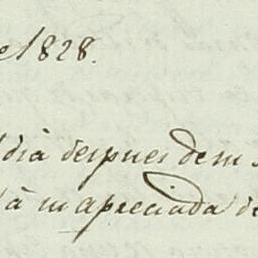 e 1828.
dia despues de m
à su apreciada de